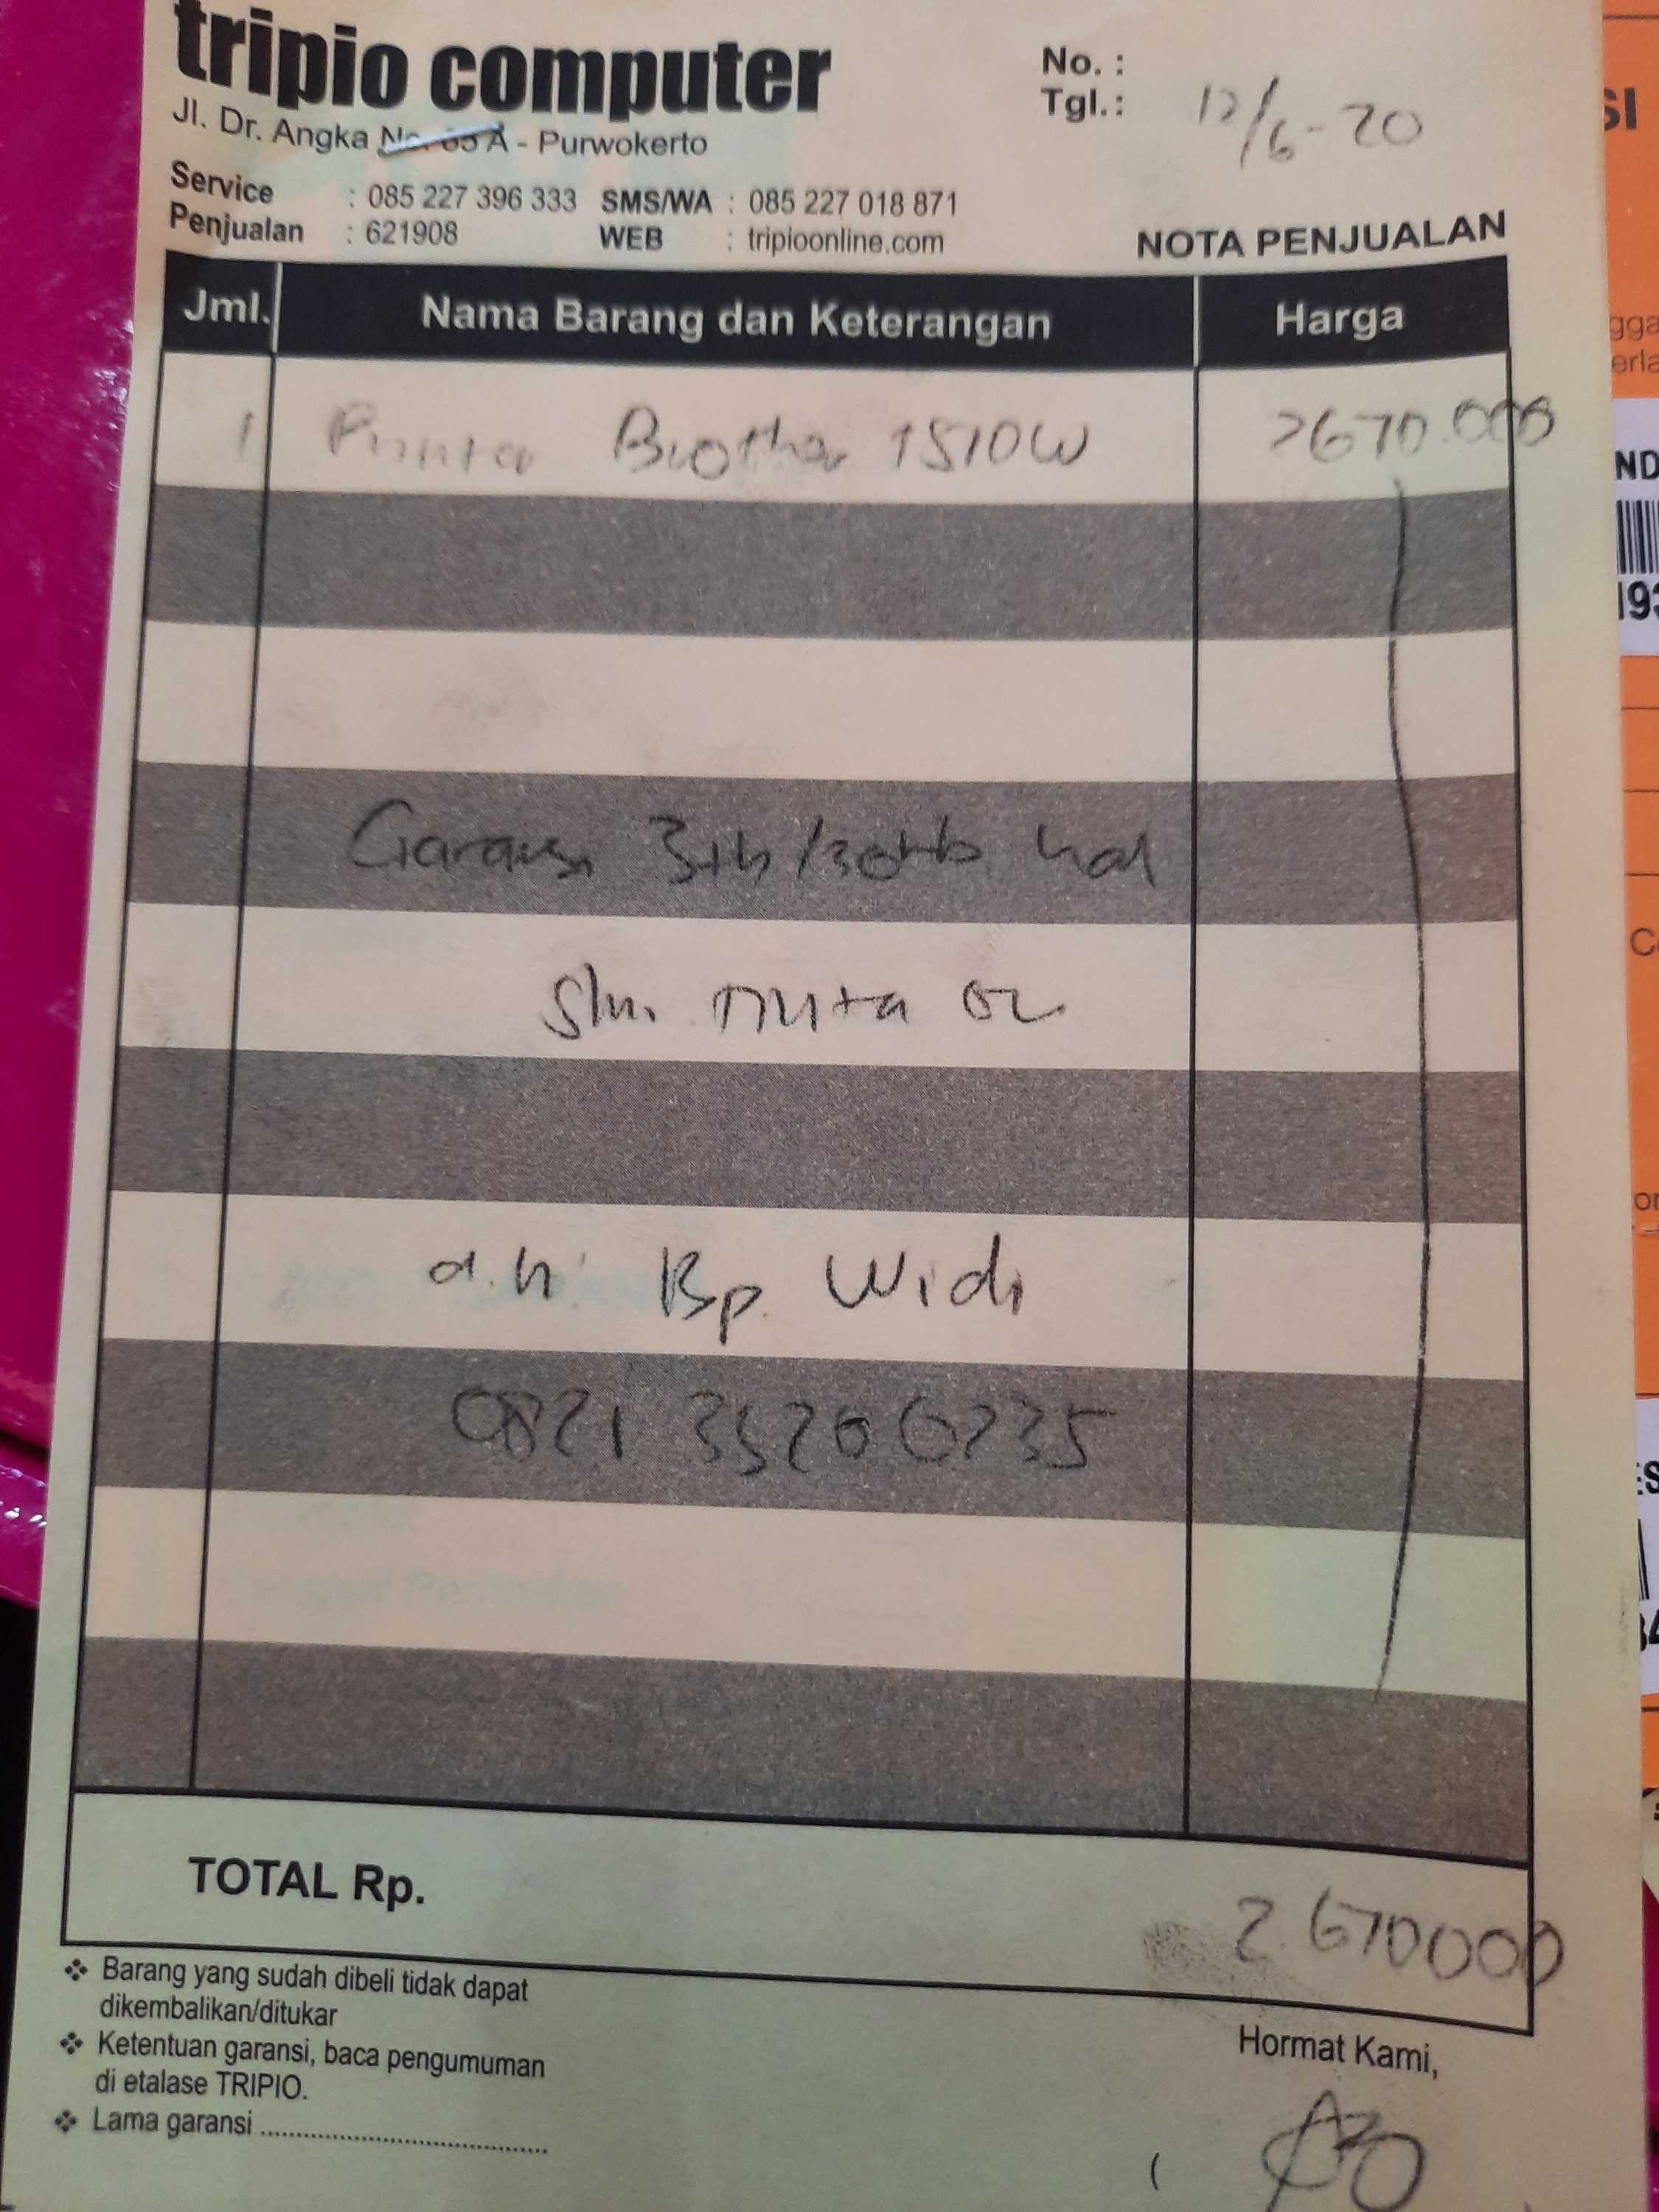 tripio computer
Jl. Dr. Angka No. 65 A - Purwokerto
No. :
Tgl.: 12/6-20
Service : 085 227 396 333 SMS/WA : 085 227 018 871
Penjualan : 621908 WEB : tripioonline.com
NOTA PENJUALAN
Jml. Nama Barang dan Keterangan Harga
1 Printer Brother 1510W 2670.000
Garansi 3th/30rb hal
tinta
a.n. Bp. Widi
0821 35200235
TOTAL Rp. 2.670000
❖ Barang yang sudah dibeli tidak dapat
dikembalikan/ditukar
❖ Ketentuan garansi, baca pengumuman
di etalase TRIPIO.
❖ Lama garansi ........................................
Hormat Kami,